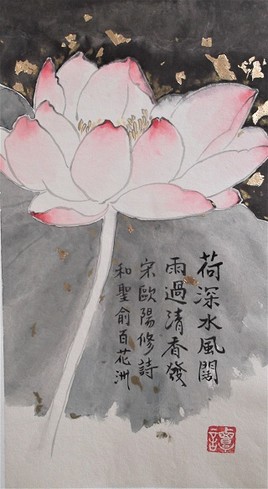 荷深水風闊
雨過清香發
宋歐陽修詩
和聖俞百花洲